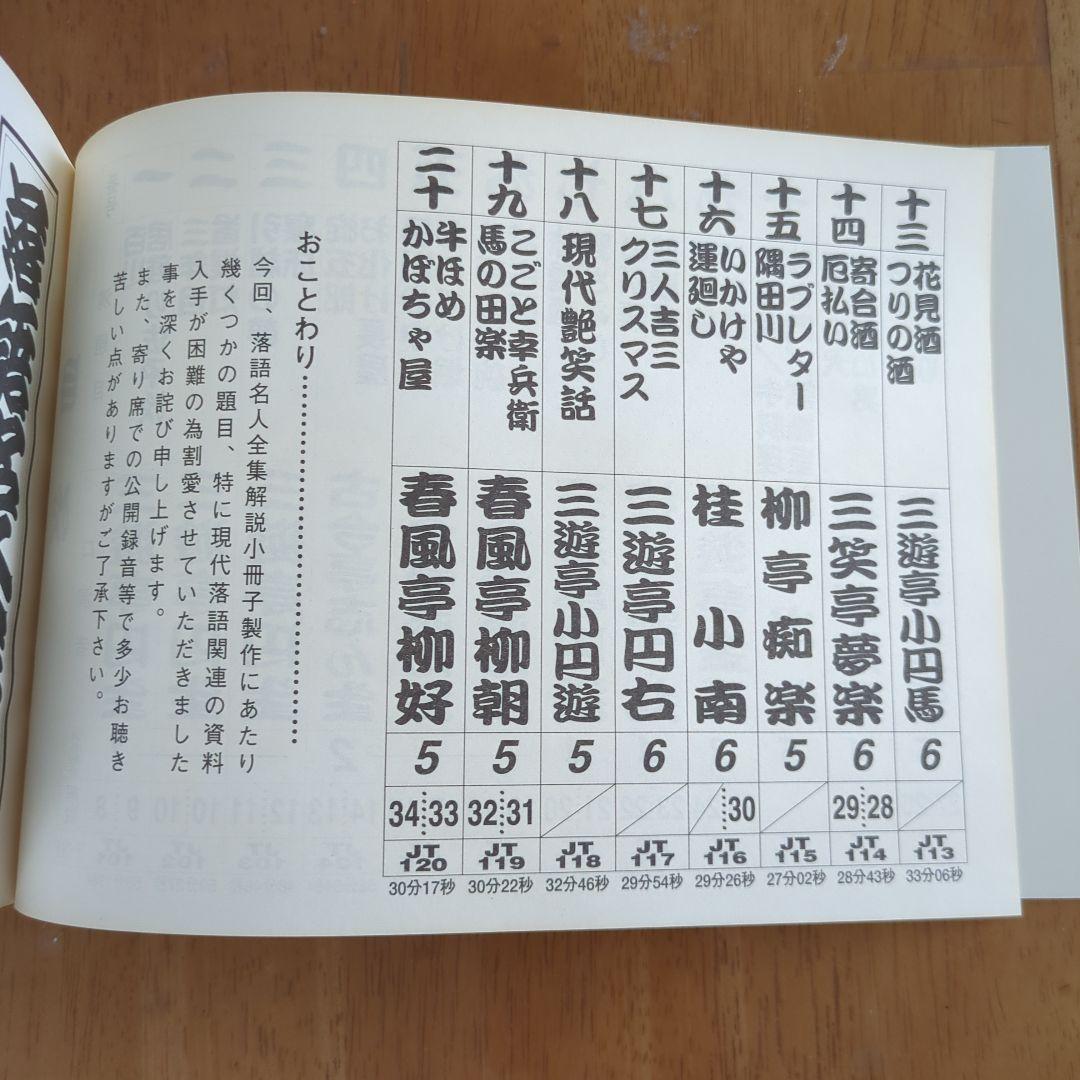 十三
花見酒
つりの酒
三遊亭小円馬
6
JT
113
33分06秒
十四
寄合酒
厄払い
三笑亭夢楽
6
29 28
JT
114
28分43秒
十五
ラブレター
隅田川
柳亭痴楽
5
JT
115
27分02秒
十六
いかけや
運廻し
桂小南
6
30
JT
116
29分26秒
十七
三人吉三
クリスマス
三遊亭円右
6
JT
117
29分54秒
十八
現代艶笑話
三遊亭小円遊
5
JT
118
32分46秒
十九
こごと幸兵衛
馬の田楽
春風亭柳朝
5
32 31
JT
119
30分22秒
二十
牛ほめ
かぼちゃ屋
春風亭柳好
5
34 33
JT
120
30分17秒
おことわり………………………………
今回、落語名人全集解説小冊子製作にあたり
幾くつかの題目、特に現代落語関連の資料
入手が困難の為割愛させていただきました
事を深くお詫び申し上げます。
また、寄り席での公開録音等で多少お聴き
苦しい点がありますがご了承下さい。